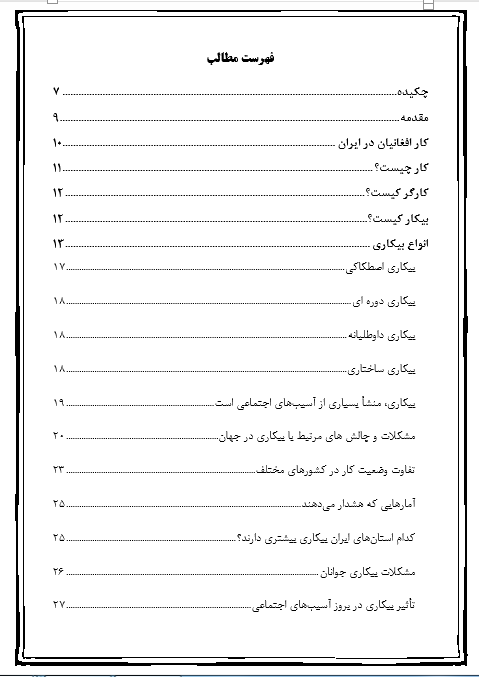 فهرست مطالب
چکیده ۷
مقدمه ۹
کار افغانیان در ایران ۱۰
کار چیست؟ ۱۱
کارگر کیست؟ ۱۲
بیکار کیست؟ ۱۲
انواع بیکاری ۱۳
بیکاری اصطکاکی ۱۷
بیکاری دوره ای ۱۸
بیکاری داوطلبانه ۱۸
بیکاری ساختاری ۱۸
بیکاری، منشأ بسیاری از آسیب‌های اجتماعی است ۱۹
مشکلات و چالش های مرتبط با بیکاری در جهان ۲۰
تفاوت وضعیت کار در کشورهای مختلف ۲۳
آمارهایی که هشدار می‌دهند ۲۵
کدام استان‌های ایران بیکاری بیشتری دارند؟ ۲۵
مشکلات بیکاری جوانان ۲۶
تأثیر بیکاری در بروز آسیب‌های اجتماعی ۲۷